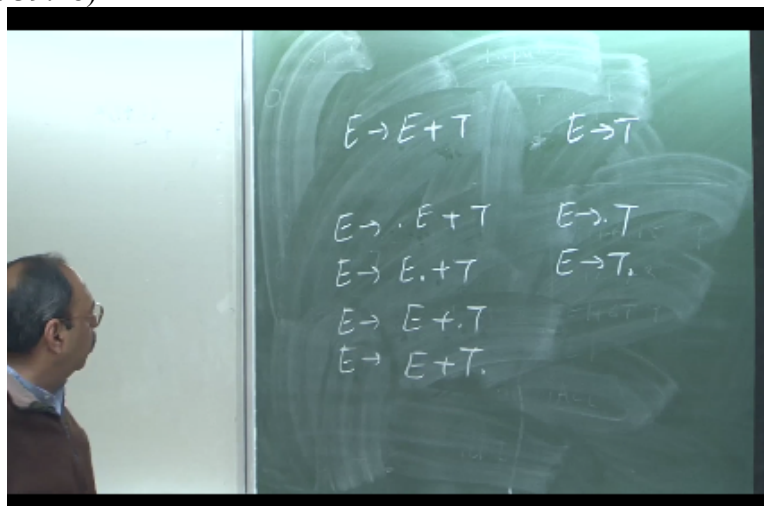 E → E + T E → T
E → . E + T E → . T
E → E . + T E → T .
E → E + . T
E → E + T .